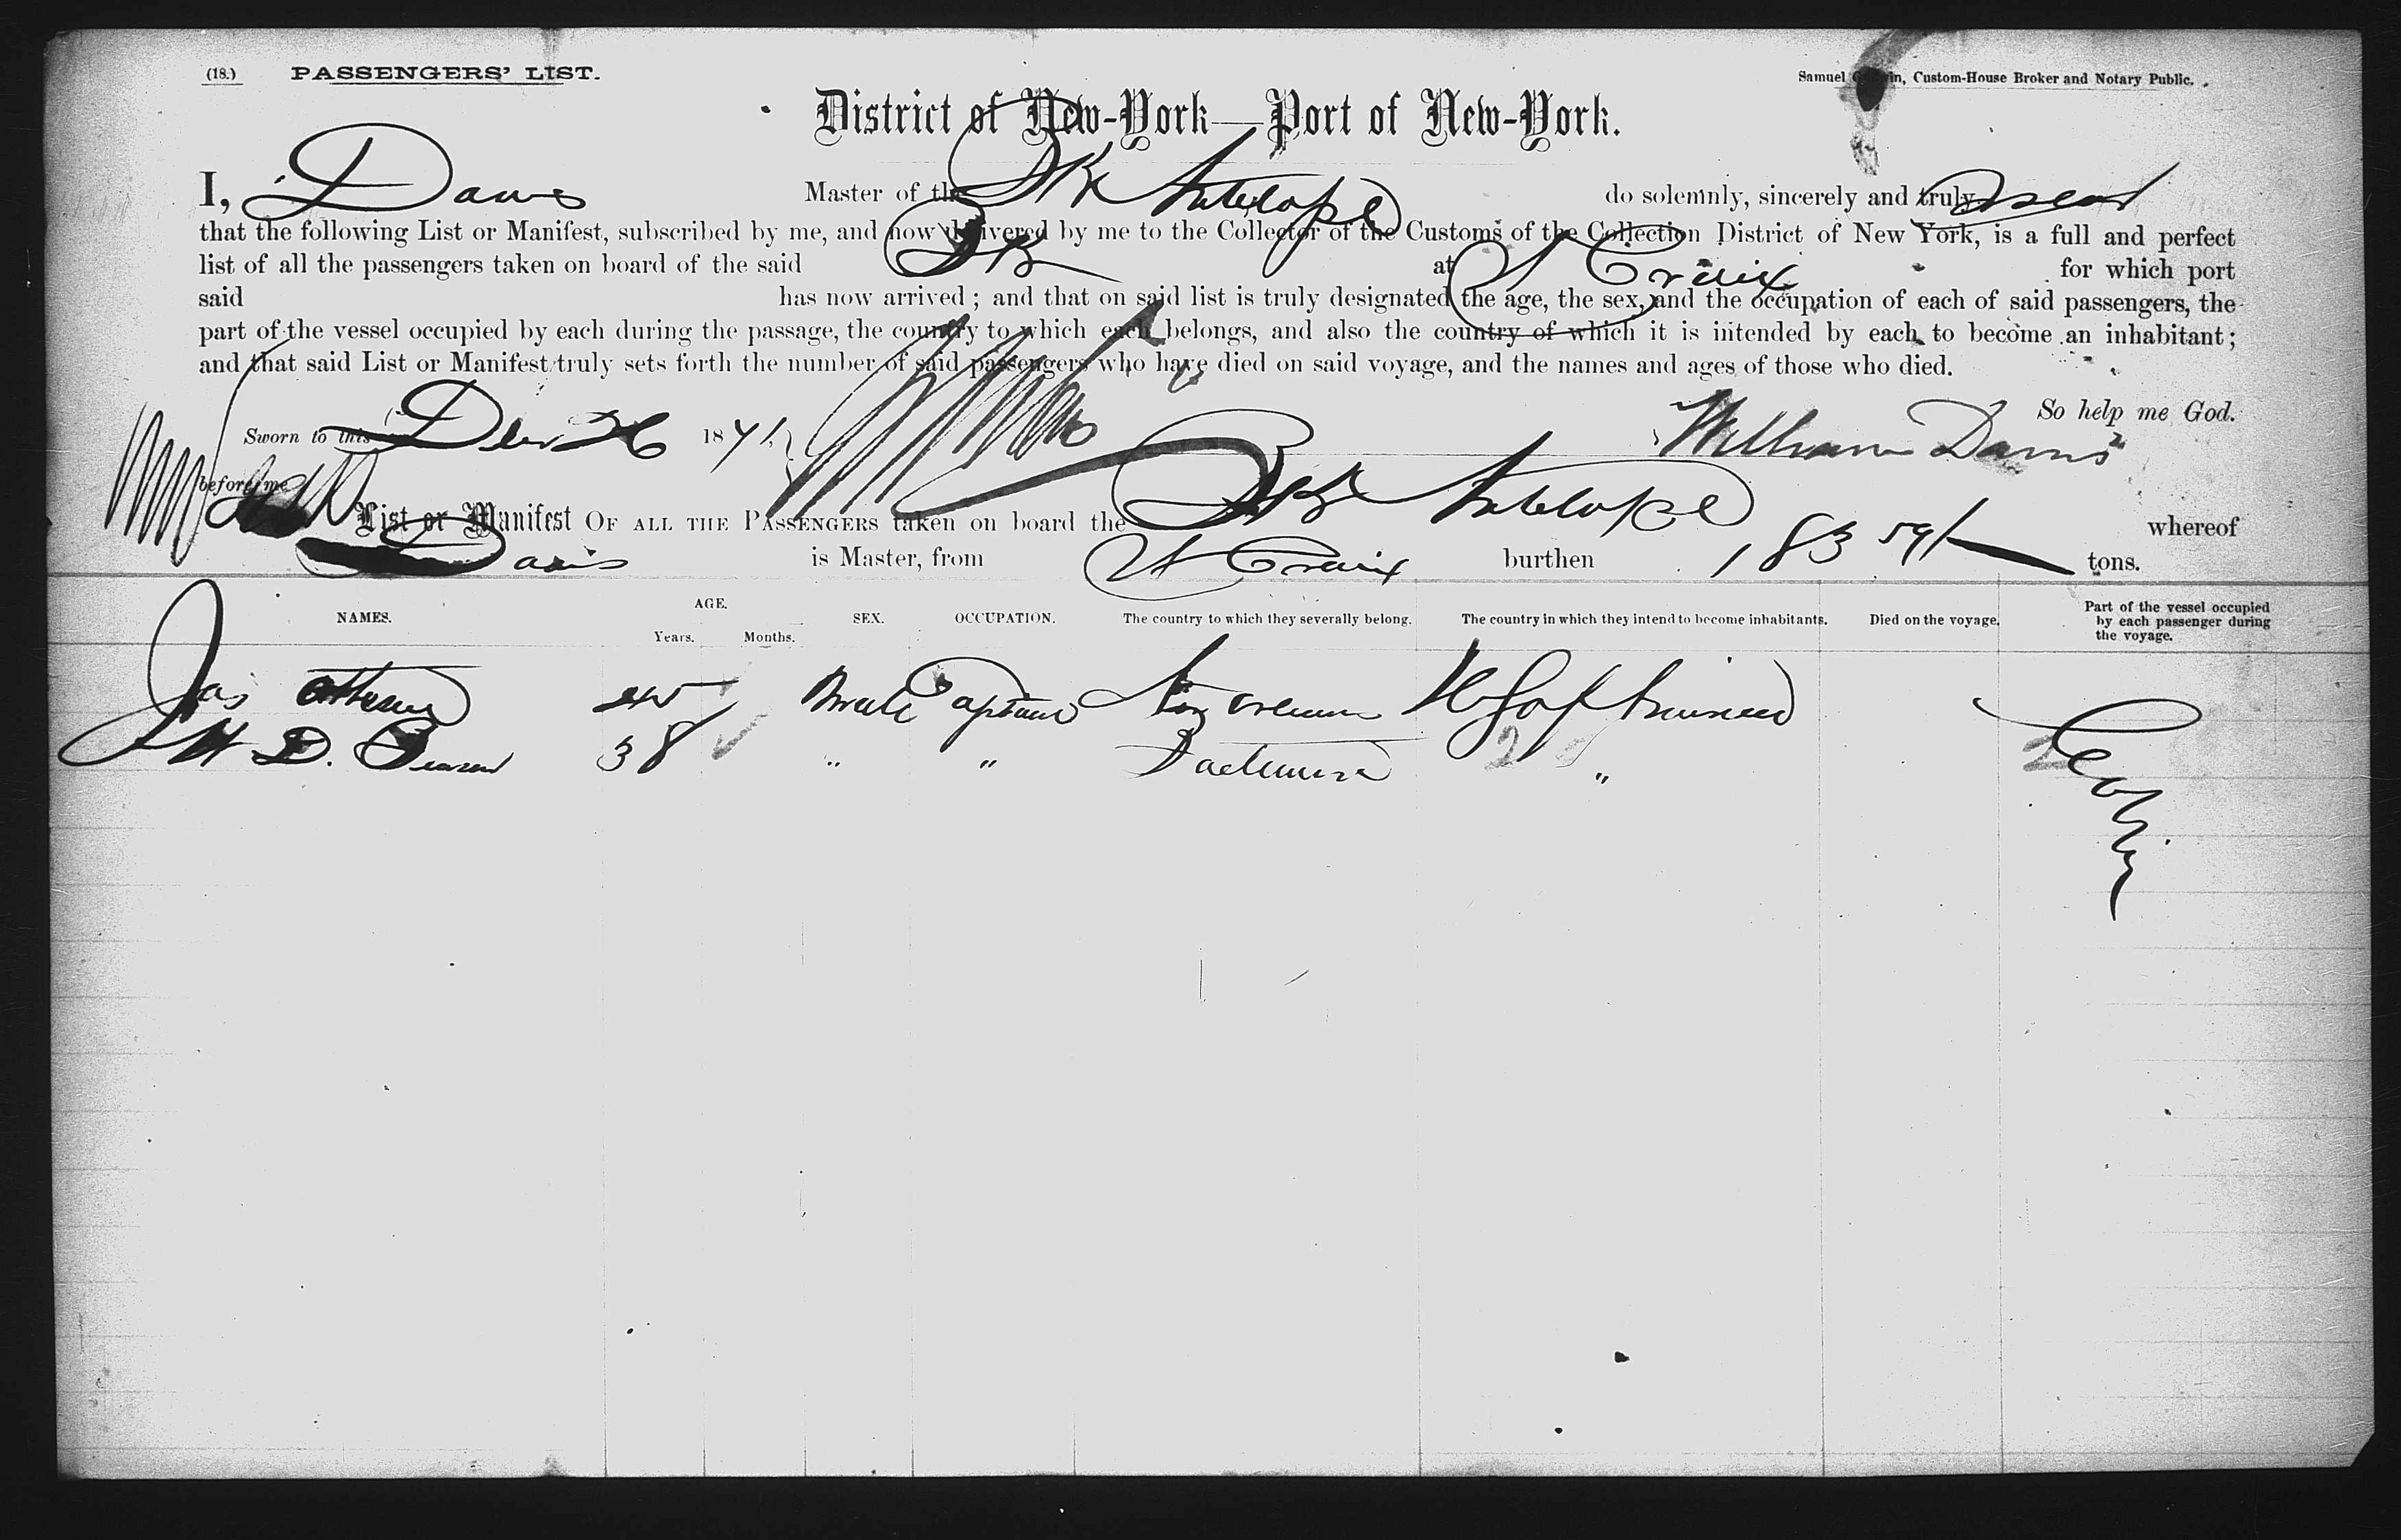 (18.) PASSENGERS' LIST.
Samuel Custom-House Broker and Notary Public.
District of New-York—Port of New-York.
I, Davis Master of the Bk Antelope do solemnly, sincerely and truly swear
that the following List or Manifest, subscribed by me, and now delivered by me to the Collector of the Customs of the Collection District of New York, is a full and perfect
list of all the passengers taken on board of the said Bk at St Croix for which port
said has now arrived; and that on said list is truly designated the age, the sex, and the occupation of each of said passengers, the
part of the vessel occupied by each during the passage, the country to which each belongs, and also the country of which it is intended by each to become an inhabitant;
and that said List or Manifest truly sets forth the number of said passengers who have died on said voyage, and the names and ages of those who died.
So help me God.
Sworn to this Dec 26 1871, William Davis
before me
List or Manifest OF ALL THE PASSENGERS taken on board the Bk Antelope whereof
Davis is Master, from St Croix burthen 183 59/ tons.
NAMES. AGE. SEX. OCCUPATION. The country to which they severally belong. The country in which they intend to become inhabitants. Died on the voyage. Part of the vessel occupied by each passenger during the voyage.
Years. Months.
Jas Male Captain U S of America
D. 38 " " "
2 2
Cabin